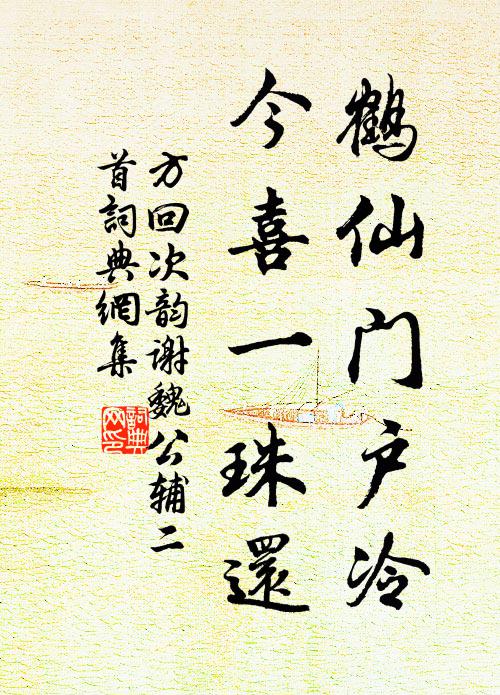 鶴仙门户冷
今喜一珠還
方回次韵谢魏公辅二
首詞典網集
詞典
网印